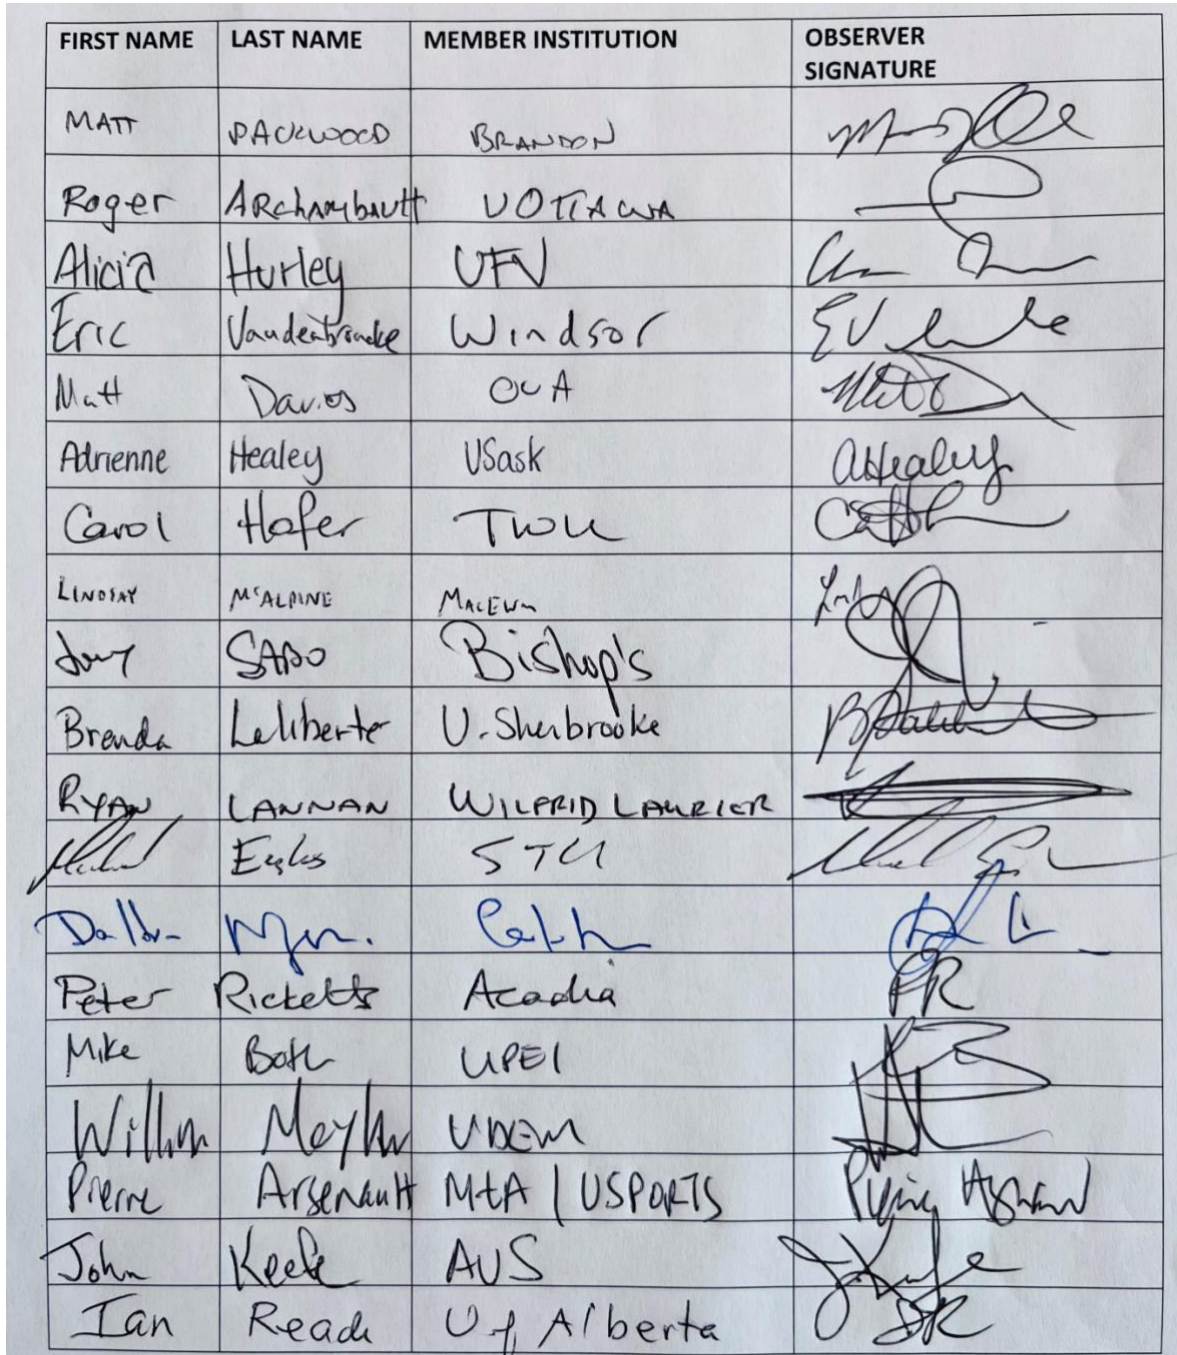 FIRST NAME LAST NAME MEMBER INSTITUTION OBSERVER
SIGNATURE
MATT PACKWOOD BRANDON
Roger ARchambault UOTTAWA
Alicia Hurley UFV
Eric Vandenbroucke Windsor
Matt Davies OUA
Adrienne Healey USask AHealey
Carol Hofer TWU
LINDSAY McALPINE MACEWN
SABO Bishop's
Brenda Laliberte U. Sherbrooke
RYAN LANNAN WILFRID LAURIER
Eagles STU
Peter Ricketts Acadia PR
Mike Both UPEI
UDEM
Pierre Arsenault MtA / USPORTS
John Keefe AUS
Ian Reade U of Alberta